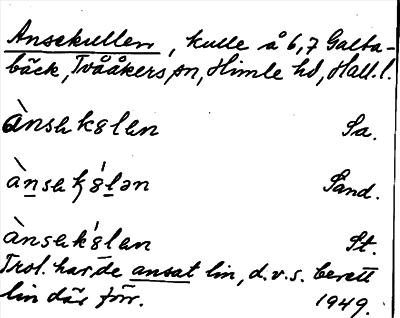 Ansekullen, kulle å 6,7 Galta-
bäck, Tvååkers sn, Himle hd, Hall. l.
ànsekɞlen Sa.
ànsekɞ́lən Sand.
ànsekɞ́len St.
Trol. har de ansat lin, d.v.s. berett
lin där förr. 1949.